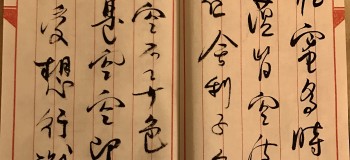 蜜多時
蘊皆空度
厄舍利子色
空不異色
是空空即
受想行識